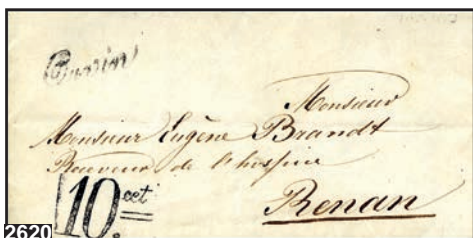 Monsieur
Monsieur Eugène Brandt
Receveur de l'hospice
Renan
10 cet
2620